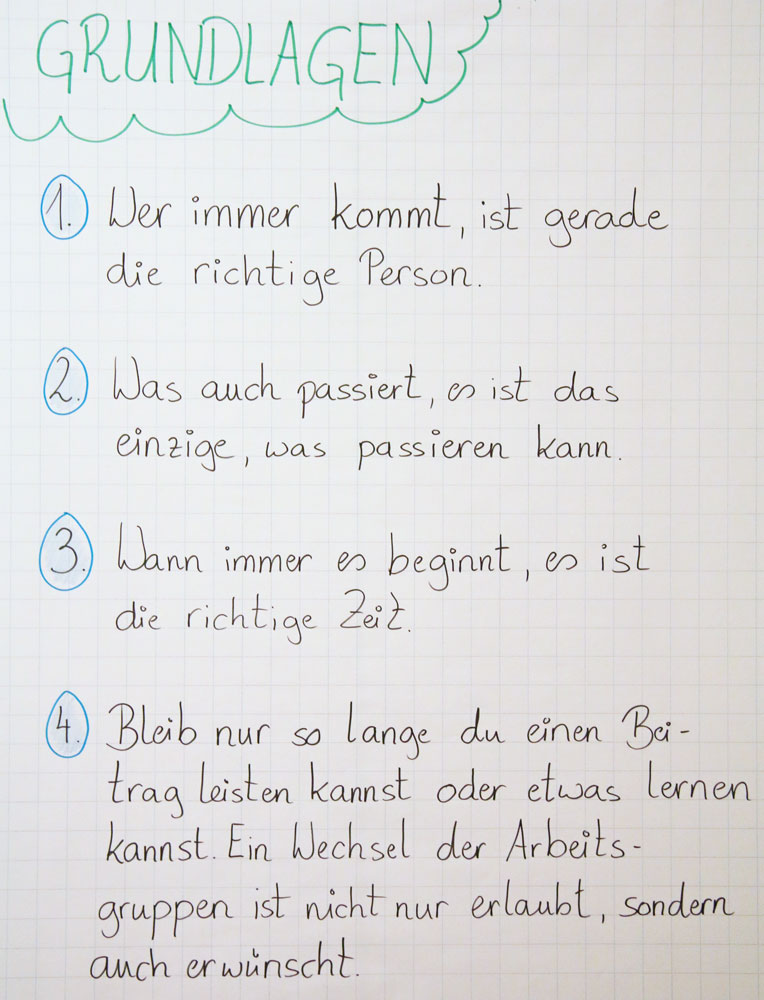 GRUNDLAGEN
1. Wer immer kommt, ist gerade
die richtige Person.
2. Was auch passiert, es ist das
einzige, was passieren kann.
3. Wann immer es beginnt, es ist
die richtige Zeit.
4. Bleib nur so lange du einen Bei-
trag leisten kannst oder etwas lernen
kannst. Ein Wechsel der Arbeits-
gruppen ist nicht nur erlaubt, sondern
auch erwünscht.